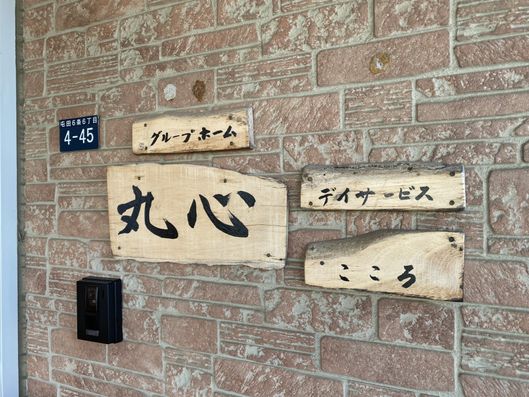 屯田6条6丁目
4-45
グループホーム
丸心
デイサービス
こころ